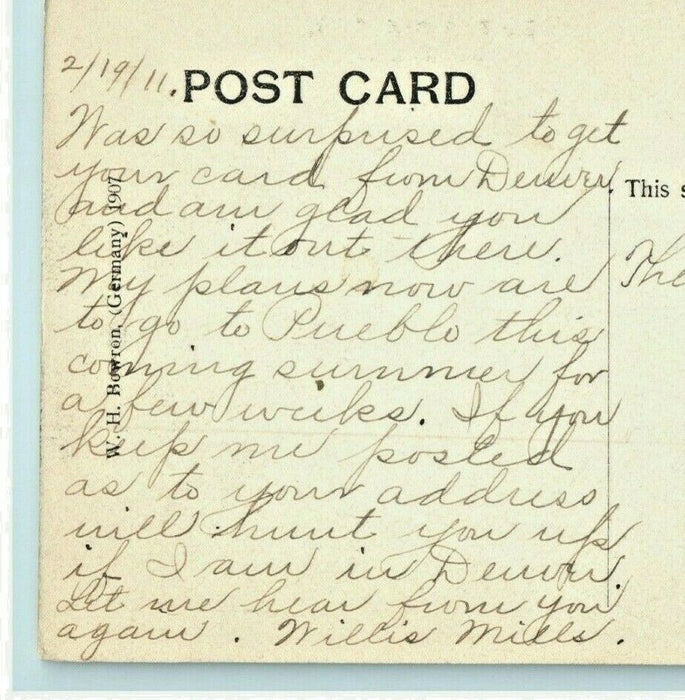 2/19/11.
POST CARD
Was so surprised to get
your card from Denver
and am glad you
like it out there.
My plans now are
to go to Pueblo this
coming summer for
a few weeks. If you
keep me posted
as to your address
will hunt you up
if I am in Denver.
Let me hear from you
again. Willis Mills.
W. H. Bowron, (Germany) 1907
This s
The